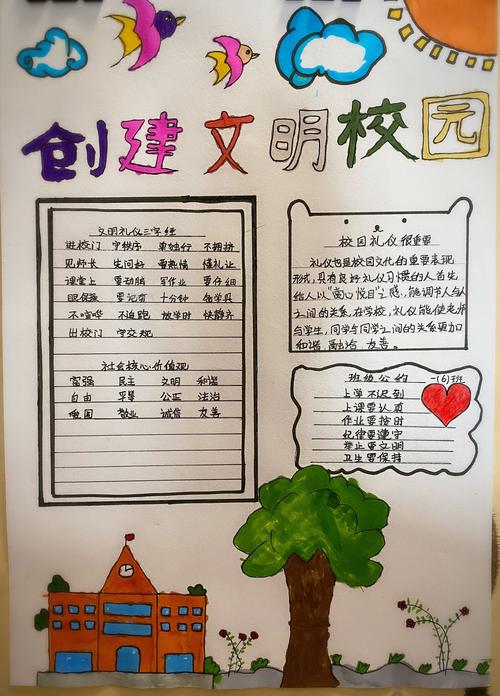 创建文明校园
文明礼仪三字经
进校门 守秩序 单独行 不拥挤
见师长 先问好 要热情 懂礼让
课堂上 要动脑 写作业 要仔细
眼保操 要记字 十分钟 备学具
不喧哗 不追跑 放学时 快静齐
出校门 守交规
社会核心价值观
富强 民主 文明 和谐
自由 平等 公正 法治
爱国 敬业 诚信 友善
校园礼仪很重要
礼仪也是校园文化的重要表现
形式,具有良好礼仪习惯的人首先
给人以"赏心悦目"之感,能调节人与人
之间的关系,在学校,礼仪能使老师
与学生,同学与同学之间的关系更加
和谐、融洽、友善。
班级公约 一(6)班
上学不迟到
上课要认真
作业要按时
纪律要遵守
举止要文明
卫生要保持